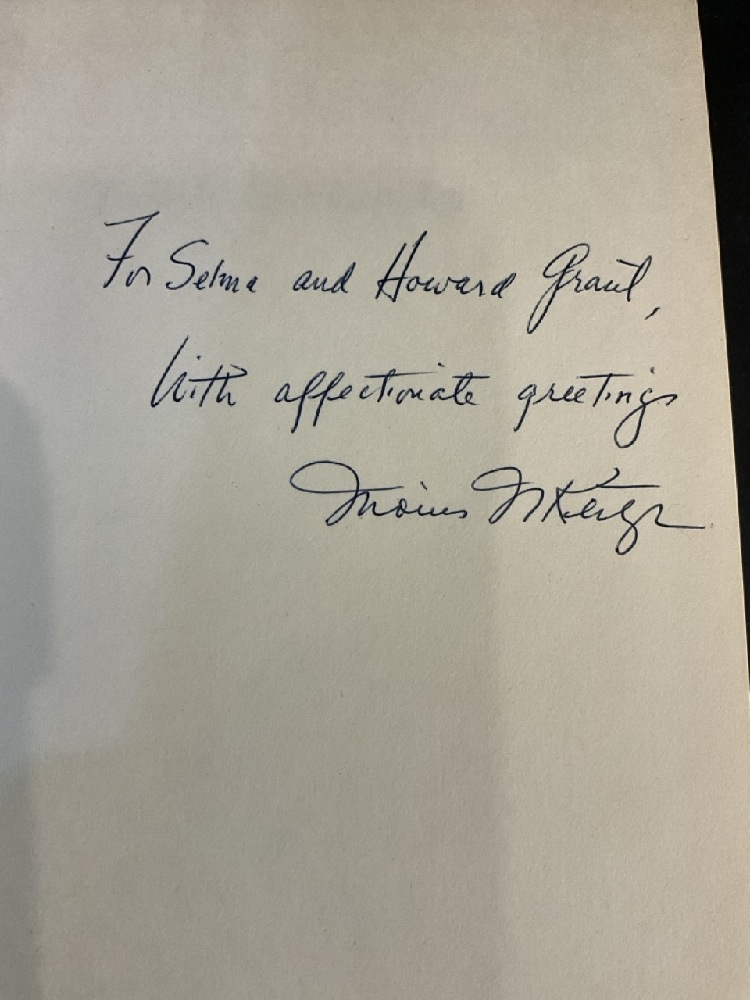 For Selma and Howard Grant,
With affectionate greetings
Morris N Kertzer